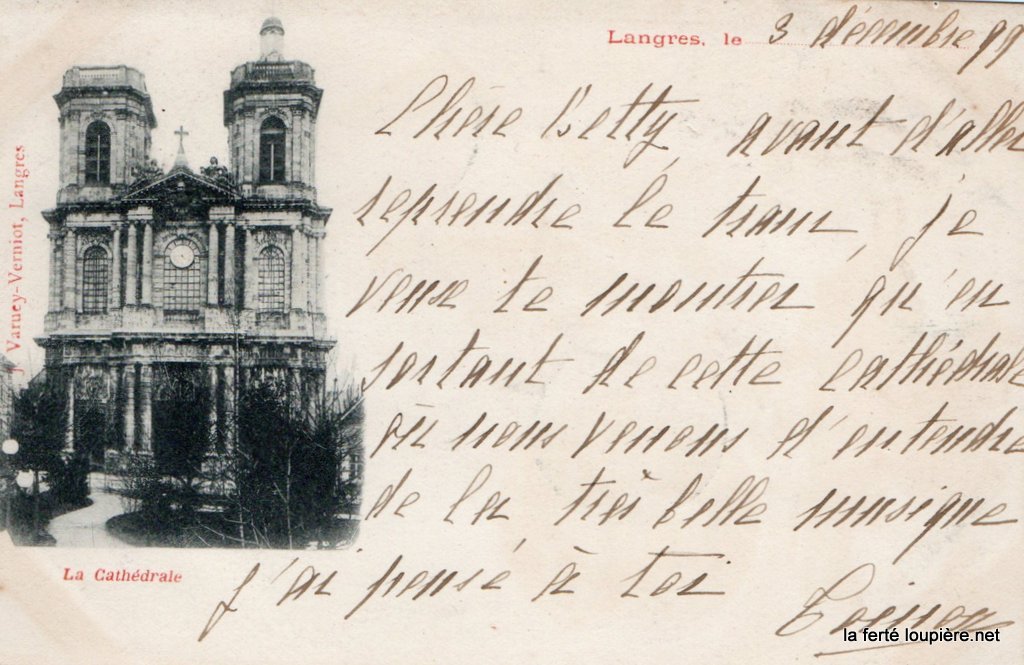 Langres, le 3 décembre 99
Chère Betty avant d'aller
reprendre le train, je
veux te montrer qu'en
sortant de cette cathédrale
où nous venons d'entendre
de la très belle musique
j'ai pensé à toi
J. Varucy-Verniot, Langres
La Cathédrale
la ferté loupière.net